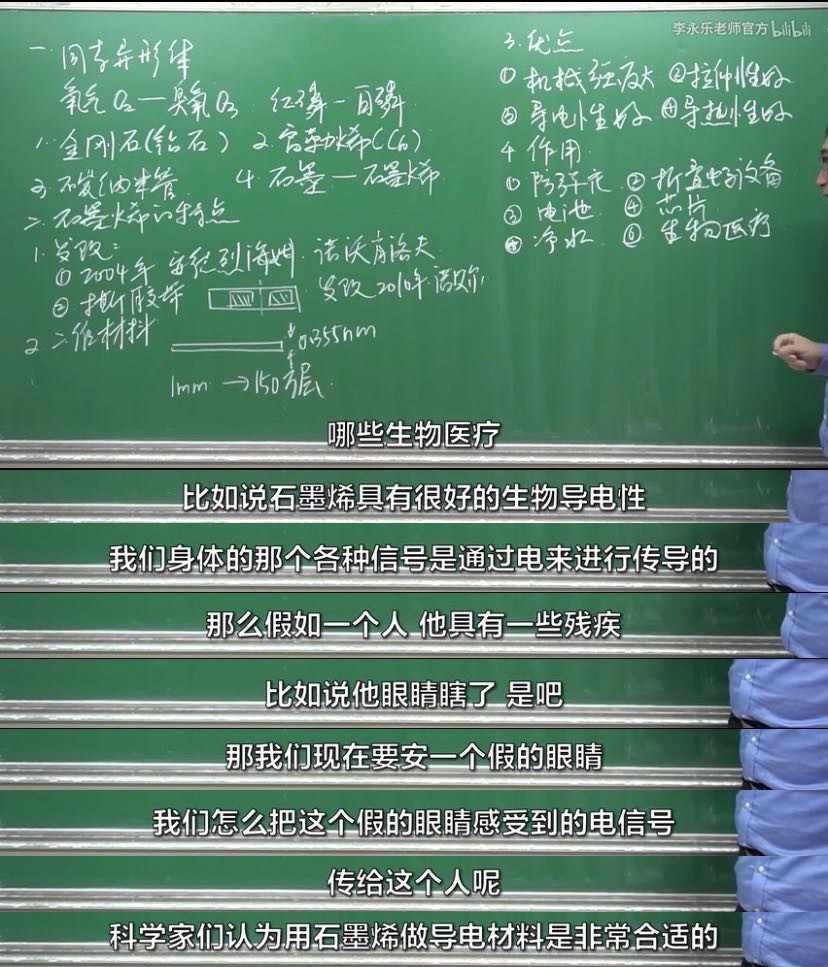 李永乐老师官方 bilibili
一 同素异形体
氧气 O₂ — 臭氧 O₃ 红磷 — 白磷
1. 金刚石(钻石) 2. 富勒烯(C60)
3. 碳纳米管 4. 石墨 — 石墨烯
二. 石墨烯的特点
1. 发现:
① 2004年 安德烈海姆. 诺沃肖洛夫
② 撕胶带 发现 2010年 诺贝尔
2 二维材料
0.355nm
1mm → 150万层.
3. 优点
① 机械强度大 ② 拉伸性好
③ 导电性好 ④ 导热性好
4 作用
① 防弹衣 ② 折叠电子设备
③ 电池 ④ 芯片
⑤ 净水 ⑥ 生物医疗
哪些生物医疗
比如说石墨烯具有很好的生物导电性
我们身体的那个各种信号是通过电来进行传导的
那么假如一个人 他具有一些残疾
比如说他眼睛瞎了 是吧
那我们现在要安一个假的眼睛
我们怎么把这个假的眼睛感受到的电信号
传给这个人呢
科学家们认为用石墨烯做导电材料是非常合适的